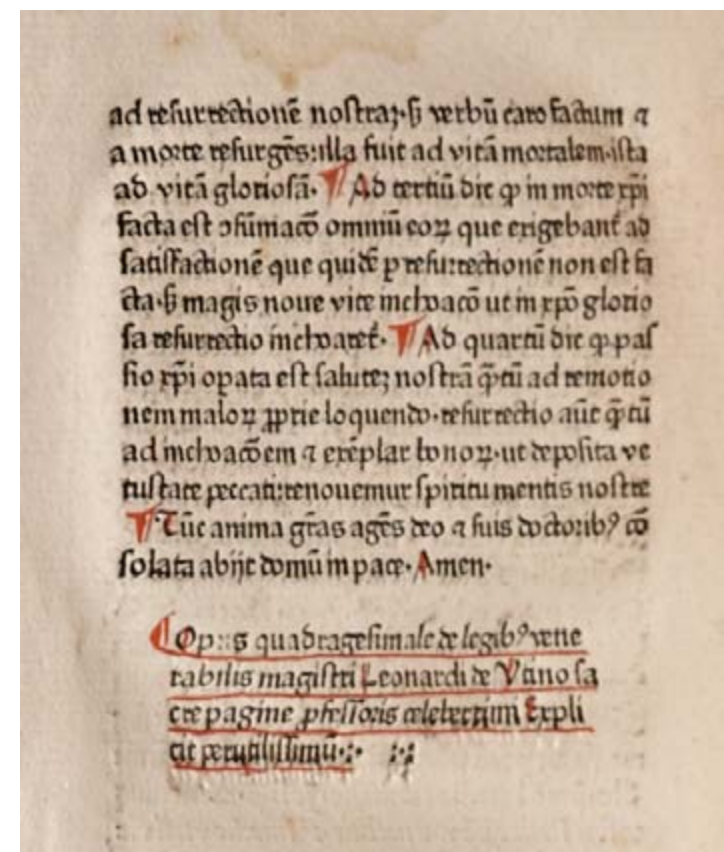 ad resurrectionē nostraꝫ·ꝭ verbū caro factum ⁊
a morte resurgēs:illa fuit ad vitā mortalem·ista
ad vitā gloriosā· ¶ Ad tertiū dic ꝙ in morte xp̄i
facta est ꝯsūmacō omniū eoꝝ que exigebant᷑ ad
satisfactionē que quidē ꝑ resurrectionē non est fa
cta·ꝭ magis noue vite inchoacō ut in xp̄o glorio
sa resurrectio inchoaret᷑· ¶ Ad quartū dic ꝙ pas
sio xp̄i oꝑata est saluteꝫ nostrā q̄ꝫtū ad remotio
nem maloꝝ ꝓprie loquendo·resurrectio aūt q̄ꝫtū
ad inchoacōem ⁊ exēplar bonoꝝ·ut deposita ve
tustate peccati:renouemur spiritu mentis nostre
¶ Tūc anima gr̄as agēs deo ⁊ suis doctoribꝰ cō
solata abijt domū in pace· Amen·
¶ Opus quadragesimale de legibꝰ vene
rabilis magistri Leonardi de Vtino sa
cre pagine ꝓfessoris celeberrimi Expli
cit perutilissimū·:· :·: